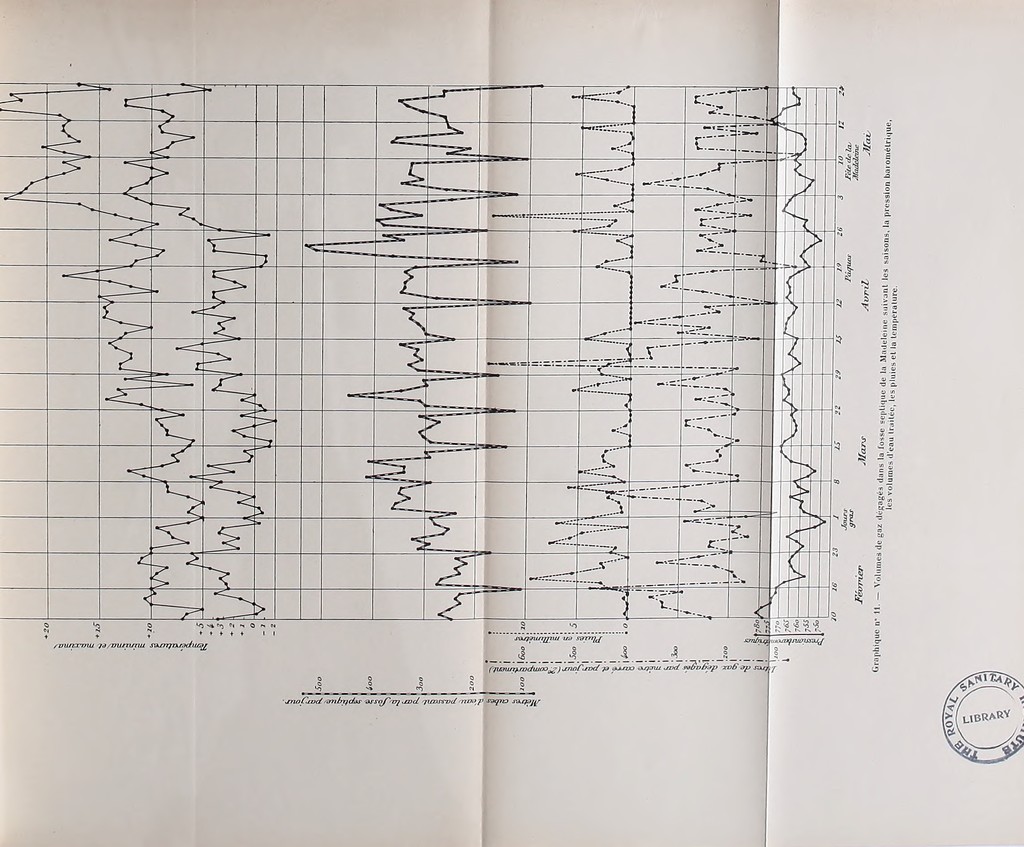 Températures minima et maxima
+20
+15
+10
+5
+4
+3
+2
+1
0
-1
-2
Mètres cubes d'eau passant par la fosse septique par jour.
500
400
300
200
100
Pluies en millimètres
10
5
0
Litres de gaz dégagés par mètre carré et par jour (2me compartiment)
600
500
400
300
200
100
Pressions barométriques
780
775
770
765
760
755
750
10
16
23
1
8
15
22
29
12
19
26
3
10
17
Février
Jours gras
Mars
Avril
Pâques
Fête de la Madeleine
Mai
Graphique n° 11. — Volumes de gaz dégagés dans la fosse septique de la Madeleine suivant les saisons, la pression barométrique,
les volumes d'eau traitée, les pluies et la température.
THE ROYAL SANITARY
LIBRARY